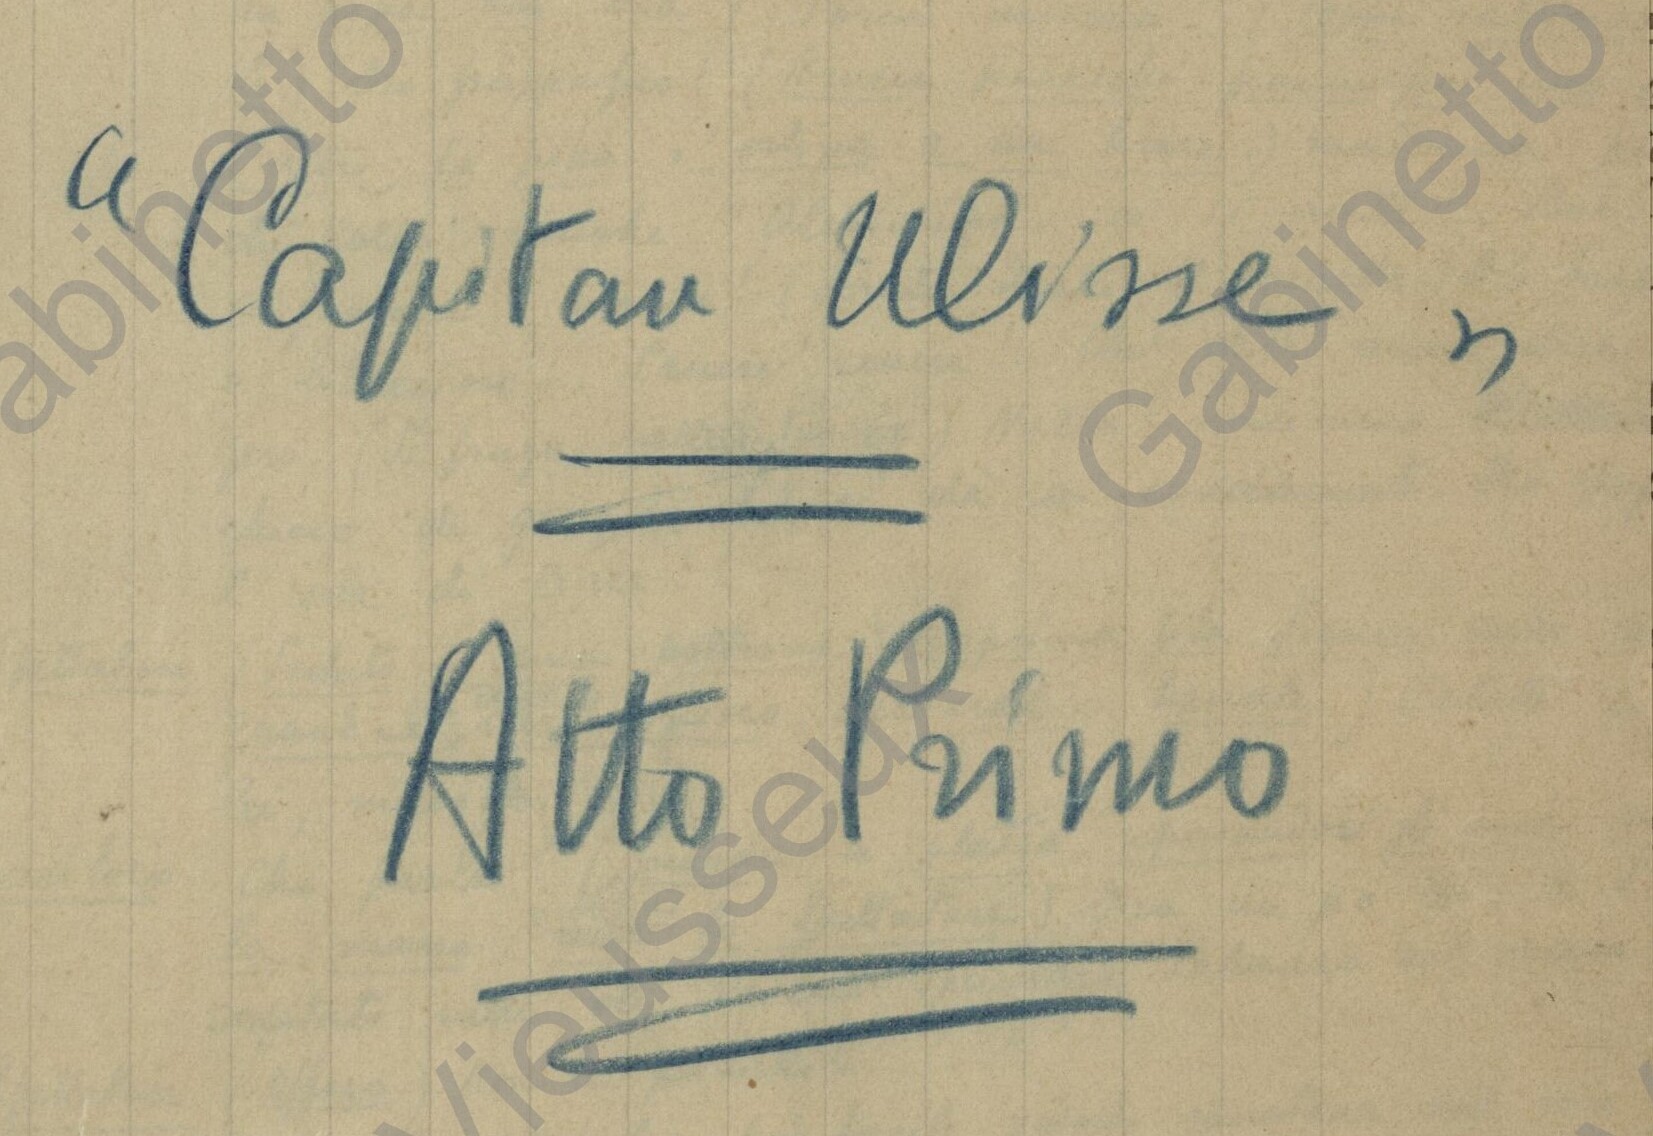 “Capitan Ulisse„
Atto Primo
Gabinetto
Gabinetto
Vieusseux